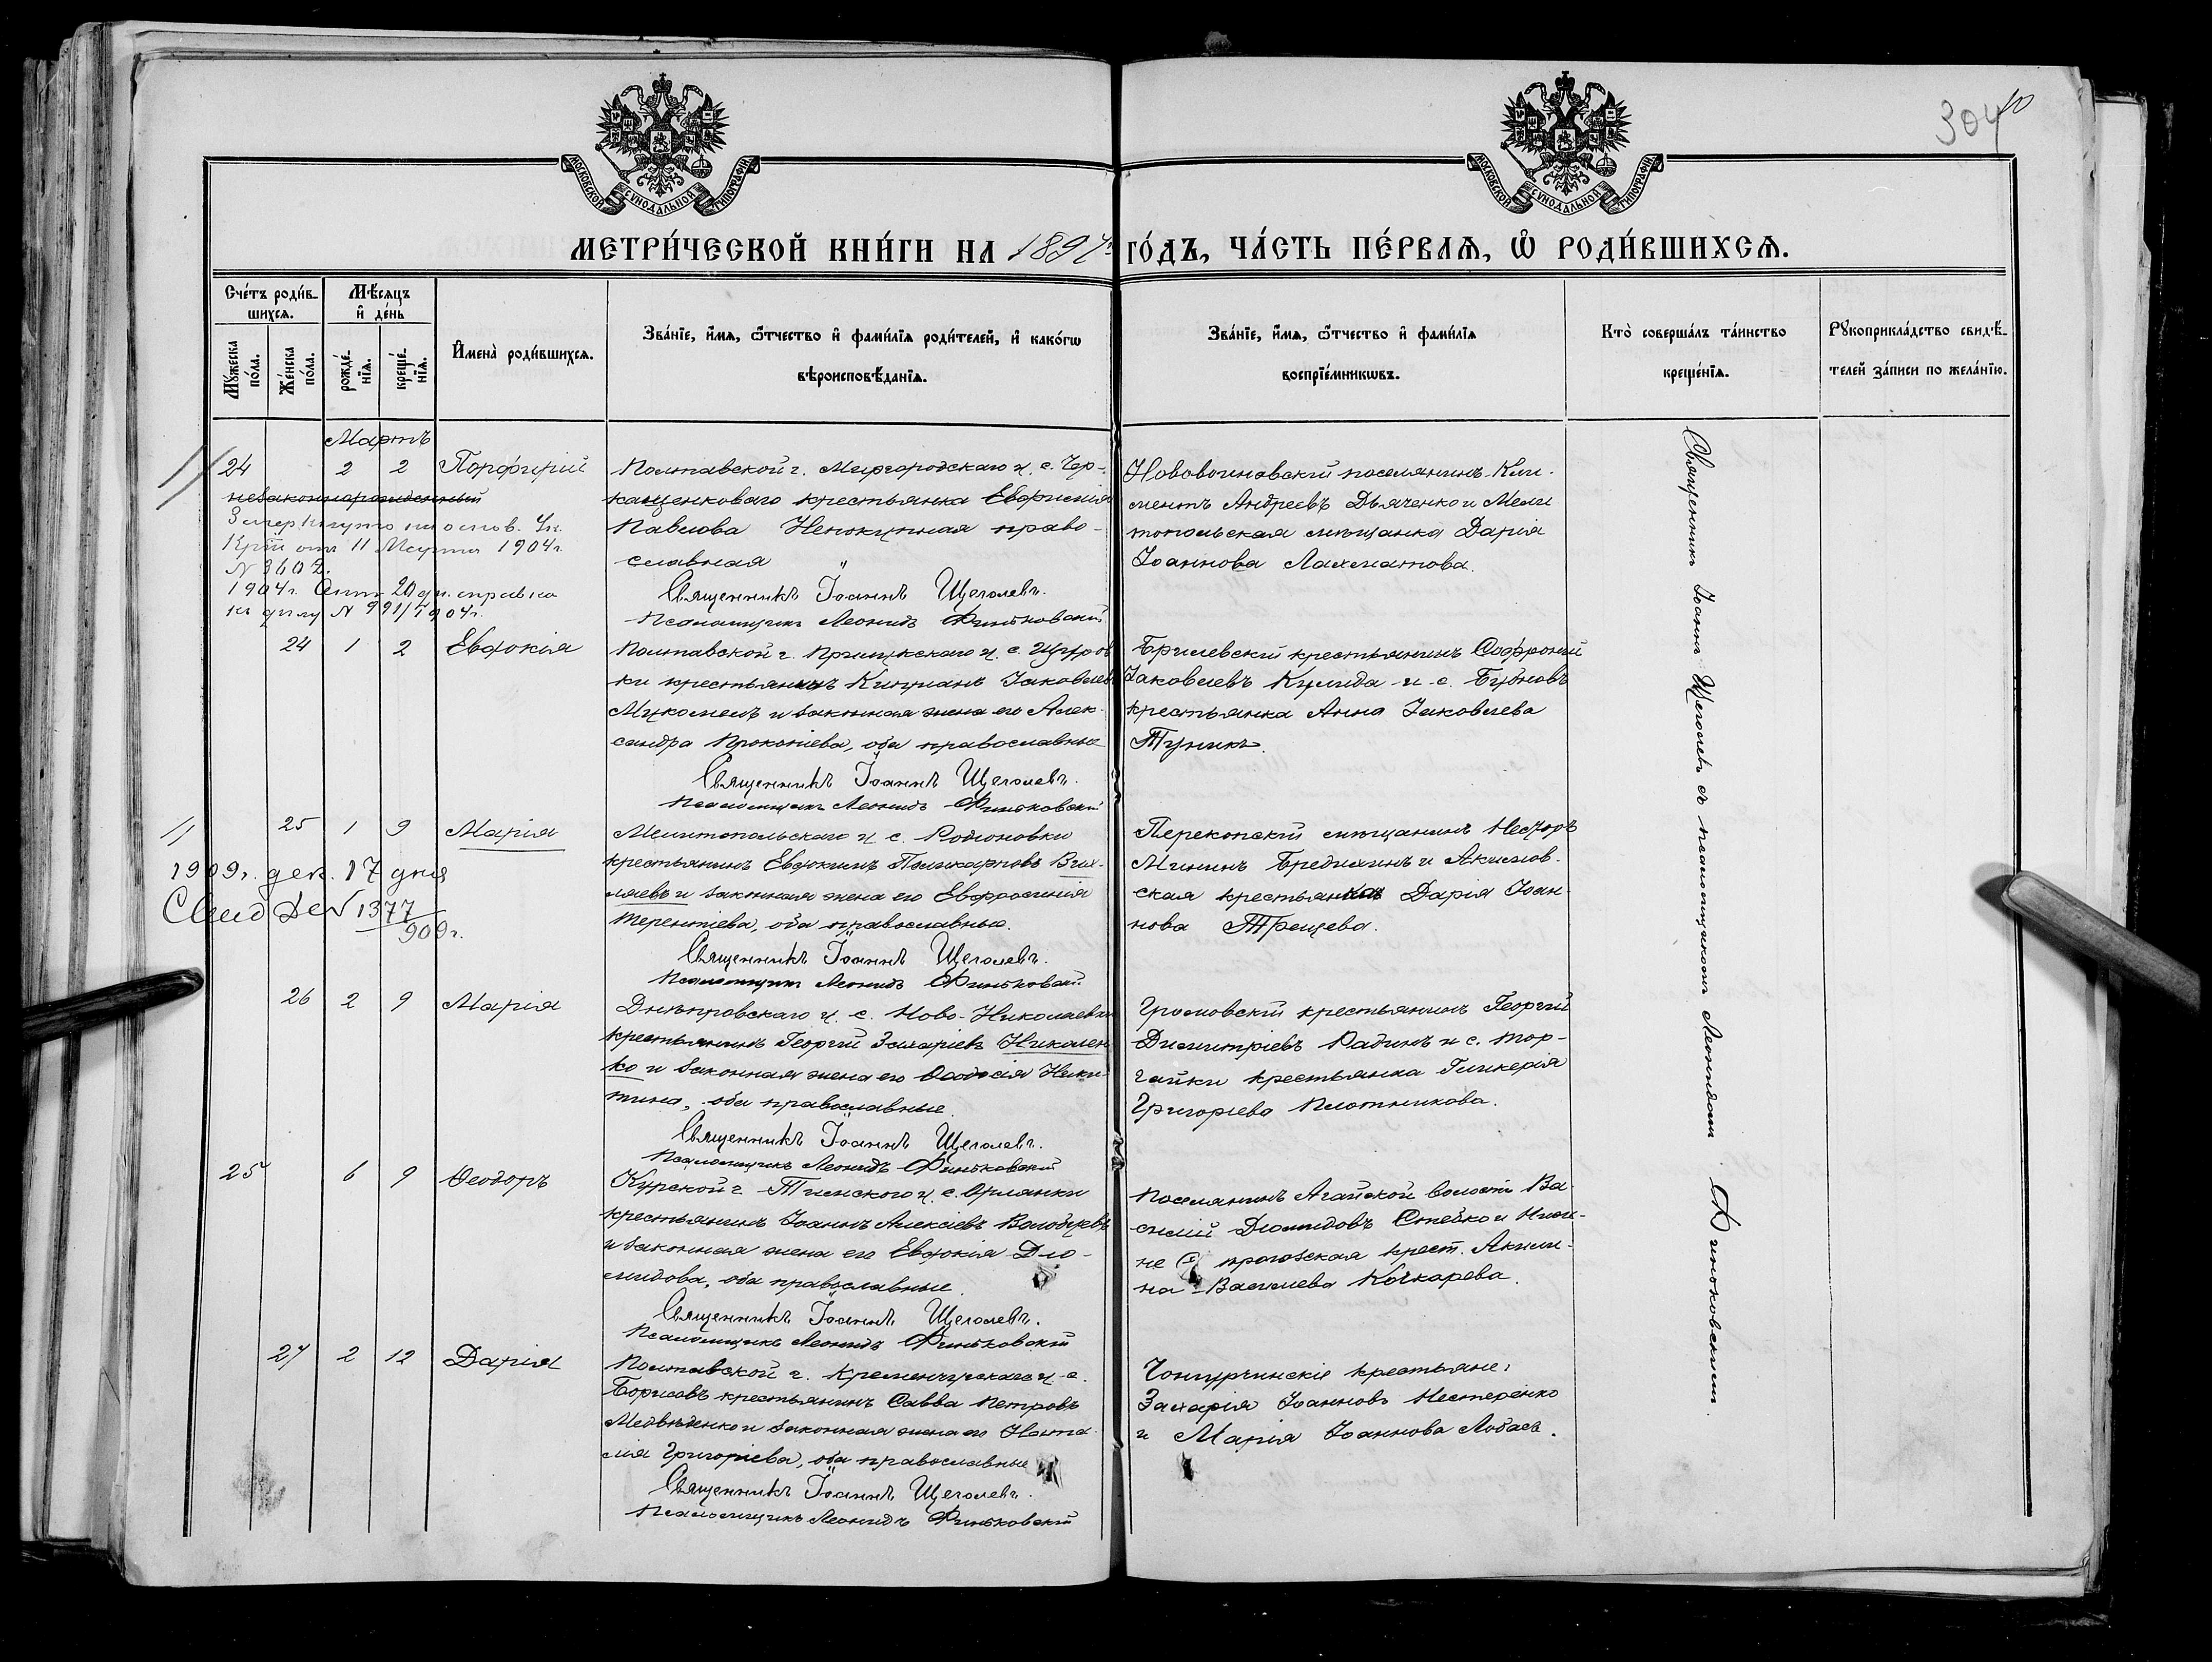 304 10
МОСКОВСКОЙ СУНОДАЛЬНОЙ ТИПОГРАФІИ
МОСКОВСКОЙ СУНОДАЛЬНОЙ ТИПОГРАФІИ
МЕТРИ́ЧЕСКОЙ КНИ́ГИ НА 1897 го́дъ, ЧА́СТЬ ПЕ́РВАѦ, Ѽ РОДИ́ВШИХСѦ.
Сче́тъ роди́в-
шихсѧ.
Мꙋ́жеска по́ла.
Же́нска по́ла.
Мѣ́сѧцъ и҆ де́нь
рожде́-нїѧ.
креще́-нїѧ.
И҆мена̀ роди́вшихсѧ.
Зва́нїе, и҆́мѧ, ѻ҆́тчество и҆ фами́лїѧ роди́телей, и҆ како́гѡ
вѣроисповѣ́данїѧ.
Зва́нїе, и҆́мѧ, ѻ҆́тчество и҆ фами́лїѧ
воспрїе́мникѡвъ.
Кто̀ соверша́лъ та́инство
креще́нїѧ.
Рꙋкоприкла́дство свидѣ́-
телей за́писи по жела́нїю.
Мартъ
24 2 2 Порфирій
незаконнорожденный
Зачеркнуто на основ. Ук.
Крт от 11 Марта 1904 г.
N 3602.
1904 г. Сент 20 дн. справка
къ дѣлу N 991/1904 г.
Полтавской г. Миргородскаго у. с. Чер-
кащенковаго крестьянка Евфимія
Павлова Непокупная право-
славная
Священникъ Іоаннъ Щеголевъ.
Псаломщикъ Леонидъ Финьковскій
Нововоинавскій поселянинъ Кли-
ментъ Андреевъ Дьяченко и Мели
топольская мѣщанка Дарія
Іоаннова Лахматова.
24 1 2 Евдокія
Полтавской г. Прилукскаго у. с. Щуров
ки крестьянинъ Кипріанъ Іаковлевъ
Мукомелъ и законная жена его Алек-
сандра Прокопіева, оба православные
Священникъ Іоаннъ Щеголевъ.
Псаломщикъ Леонидъ Финьковскій
Брилевскій крестьянинъ Софроній
Іаковлевъ Кулида и с. Бубновъ
крестьянка Анна Іаковлева
Туникъ.
25 1 9 Марія
1909 г. дек. 17 дня
Свид Де N 1377
909 г.
Мелитопольскаго у. с. Родіоновки
крестьянинъ Евдокимъ Поликарповъ Вих-
ляевъ и законная жена его Евфросинія
Терентіева, оба православные.
Священникъ Іоаннъ Щеголевъ.
Псаломщикъ Леонидъ Финьковскій
Перекопскій мѣщанинъ Несторъ
Мининъ Бредихинъ и Акимов-
ская крестьянка Дарія Іоан-
нова Трещева.
26 2 9 Марія
Днѣпровскаго у. с. Ново-Николаевки
крестьянинъ Георгій Захаріевъ Николен
ко и законная жена его Ѳеодосія Ники-
тина, оба православные.
Священникъ Іоаннъ Щеголевъ.
Псаломщикъ Леонидъ Финьковскій
Громовскій крестьянинъ Георгій
Димитріевъ Радинъ и с. Тор-
гайки крестьянка Гликерія
Григоріева Плотникова.
25 6 9 Ѳеодоръ
Курской г. Тимскаго у. с. Орлянки
крестьянинъ Іоаннъ Алексіевъ Володуевъ
и законная жена его Евдокія Дио-
мидова, оба православные.
Священникъ Іоаннъ Щеголевъ.
Псаломщикъ Леонидъ Финьковскій
Поселянинъ Агайской волости Ва-
силій Диомидовъ Стейко и Ниж-
не С рогозская крест. Акили-
на Васильева Кочкарева.
27 2 12 Дарія
Полтавской г. Кременчугскаго у. с.
Борисовъ крестьянинъ Савва Петровъ
Медвѣденко и законная жена его Ната-
лія Григоріева, оба православные
Священникъ Іоаннъ Щеголевъ.
Псаломщикъ Леонидъ Финьковскій
Чонгурчинскіе крестьяне:
Захарія Іоанновъ Нестеренко
и Марія Іоаннова Лобасъ.
Священникъ Іоаннъ Щеголевъ съ псаломщикомъ Леонидомъ Финьковскимъ.